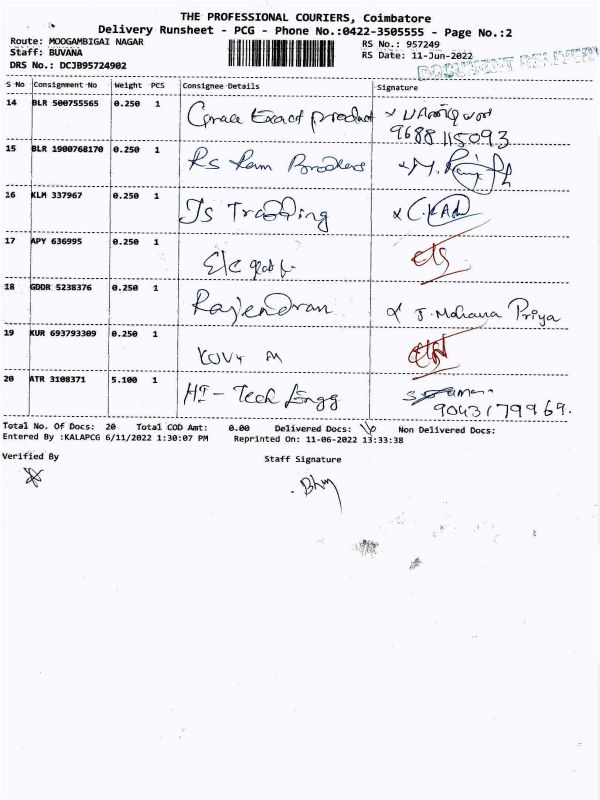 THE PROFESSIONAL COURIERS, Coimbatore
Delivery Runsheet - PCG - Phone No.:0422-3505555 - Page No.:2
Route: MOOGAMBIGAI NAGAR RS No.: 957249
Staff: BUVANA RS Date: 11-Jun-2022
DRS No.: DCJB95724902 DOCUMENT DELIVERY
S No Consignment No Weight PCS Consignee Details Signature
14 BLR 500755565 0.250 1 Grace Exact product
9688115093
15 BLR 1900768170 0.250 1 Rs Ram Brothers
16 KLM 337967 0.250 1 Js Trading
17 APY 636995 0.250 1
18 GDOR 5238376 0.250 1 Rajendran J. Mohana Priya
19 KUR 693793309 0.250 1
20 ATR 3108371 5.100 1 HI-Tech Engg
9043179969.
Total No. Of Docs: 20 Total COD Amt: 0.00 Delivered Docs: Non Delivered Docs:
Entered By :KALAPCG 6/11/2022 1:30:07 PM Reprinted On: 11-06-2022 13:33:38
Verified By Staff Signature